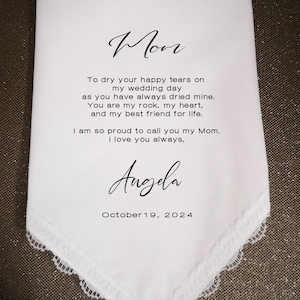 Mom
To dry your happy tears on
my wedding day
as you have always dried mine.
You are my rock, my heart,
and my best friend for life.
I am so proud to call you my Mom.
I love you always,
Angela
October19, 2024